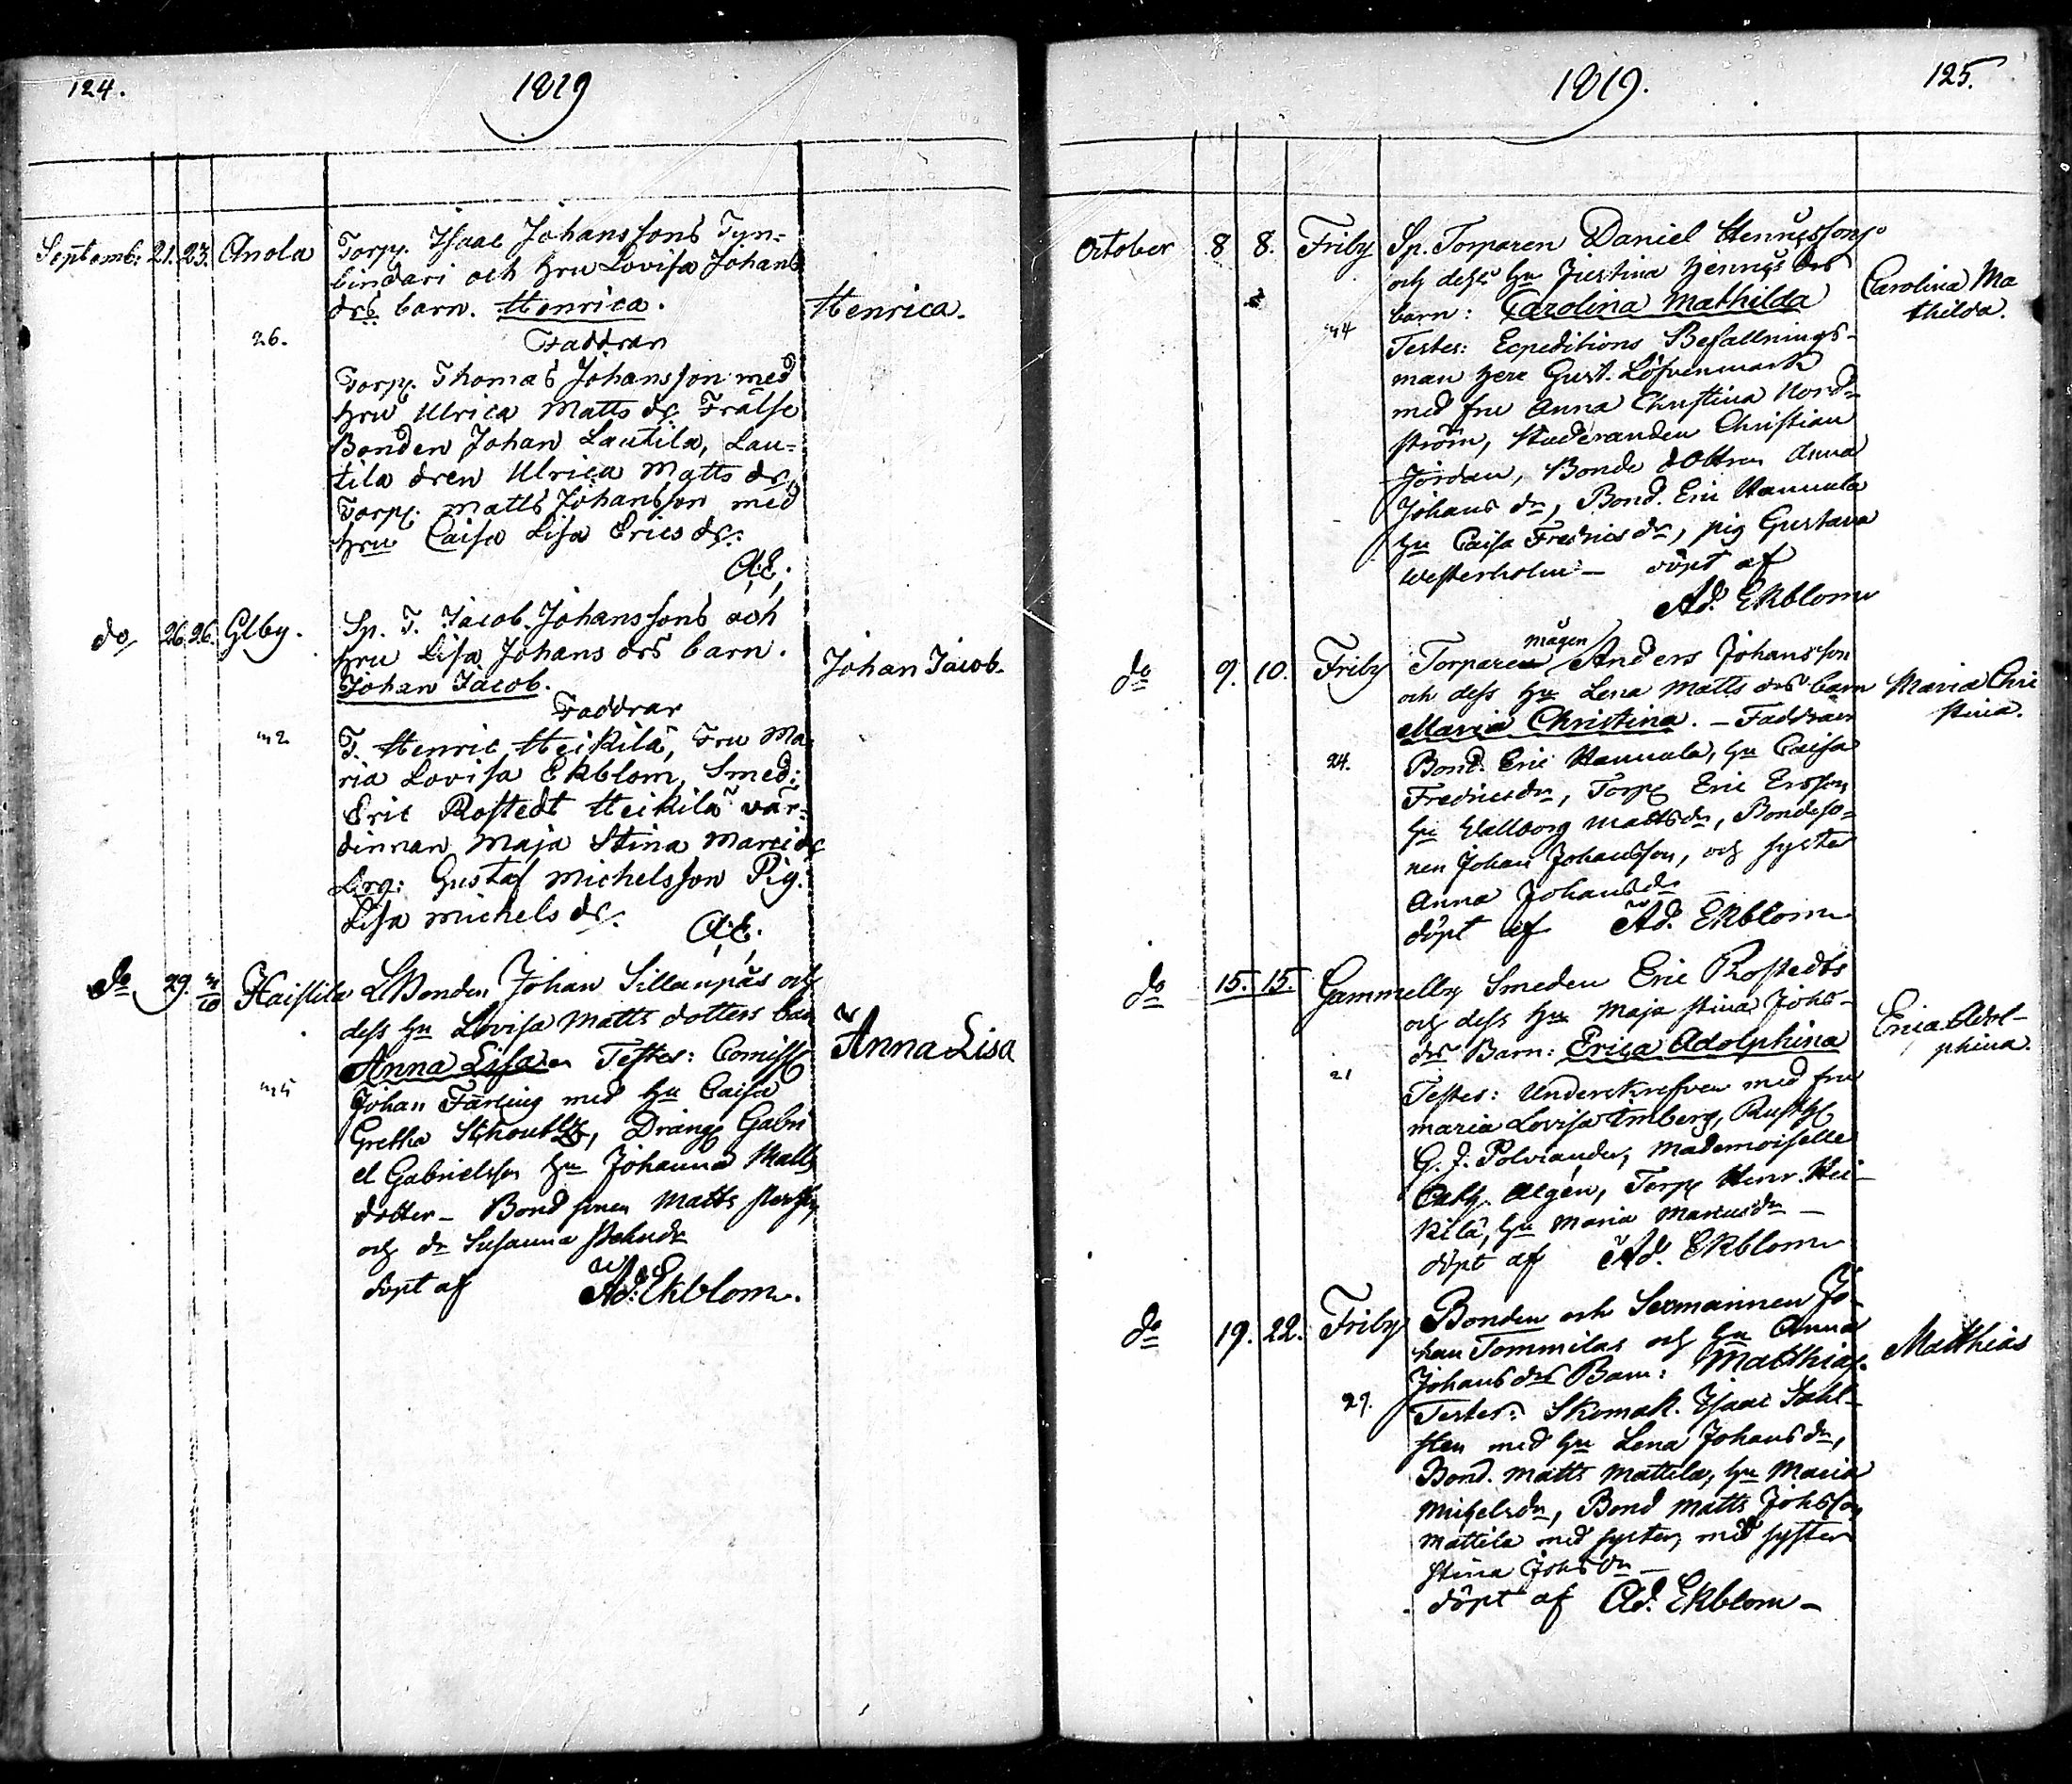 124.
1819
Septemb: 21. 23. Anola
Torp. Isaac Johanssons Tyn-
bindari och hru Lovisa Johans
drs barn. Henrica.
Henrica.
26.
Faddrar
Torp. Thomas Johansson med
hru Ulrica Matts dr. Frälse
Bonden Johan Lautila, Lau-
tila dren Ulrica Matts dr,
Torp. Matts Johansson med
hru Caisa Lisa Erics dr.
A.E.
do 26. 26. Glby.
Sp. T. Jacob Johanssons och
hru Lisa Johans drs barn.
Johan Jacob.
Johan Jacob.
Faddrar
m2
T. Henric Heikilä, Fru Ma
ria Lovisa Ekblom, Smed:
Eric Rostedt Heikilä vär-
dinnan Maja Stina Marci dr
Drg: Gustaf Michelsson Pig.
Lisa Michels dr.
A.E.
do 29. 3/10 Haistila
Bonden Johan Sillanpäs och
dess hu Lovisa Matts dotters barn
Anna Lisa Testes: Comiss
Anna Lisa
m5
Johan Färling med hu Caisa
Gretha, Dräng Gabri
el Gabrielsson hu Johanna Matts
dotter - Bond sonen Matts
och dr Susanna
döpt af Ad: Ekblom.
1819.
125.
October 8 8. Friby
Sp. Torparen Daniel Henricssons
och dess hu Justina Henrics drs
barn: Carolina Mathilda
Carolina Ma
thilda.
m4
Testes: Expeditions Befallnings-
man Herr Gust. Löfvenmark
med fru Anna Christina Nord-
ström, Studeranden Christian
Jordan, Bonde dottren Anna
Johans dr, Bond. Eric Hannula
hu Caisa Fredrics dr, pig Gustava
Westerholm - döpt af
Ad. Ekblom
do 9. 10. Friby
mågen
Torparen Anders Johansson
och dess hu Lena Matts drs barn
Maria Christina. - Faddrar
Maria Chri
stina.
24.
Bond. Eric Hannula, hu Caisa
Fredricsdr, Torp Eric Ersson
hu Wallborg Mattsdr, Bondeso-
nen Johan Johansson, och syster
Anna Johansdr
döpt af Ad. Ekblom
do 15. 15. Gammelby
Smeden Eric Rostedts
och dess hu Maja Stina Johs-
drs Barn: Erica Adolphina
Erica Adol-
phina.
21
Testes: Underskrefven med fru
Maria Lovisa Imberg, Rusth
G. J. Polviander, Mademoiselle
Cath. Algen, Torp Henr. Hei-
kilä, hu Maria Marcusdr -
döpt af Ad. Ekblom
do 19. 22. Friby
Bonden och Sexmannen Jo-
han Tommilas och hu Anna
Johans drs Barn: Matthias.
Matthias
27.
Testes: Skomak. Isaac Sahl-
sten med hu Lena Johans dr,
Bond. Matts Mattila, hu Maria
Michelsdr, Bond Matts Johsson
Mattila med syster, med syster
Stina Johs dr -
döpt af Ad. Ekblom -